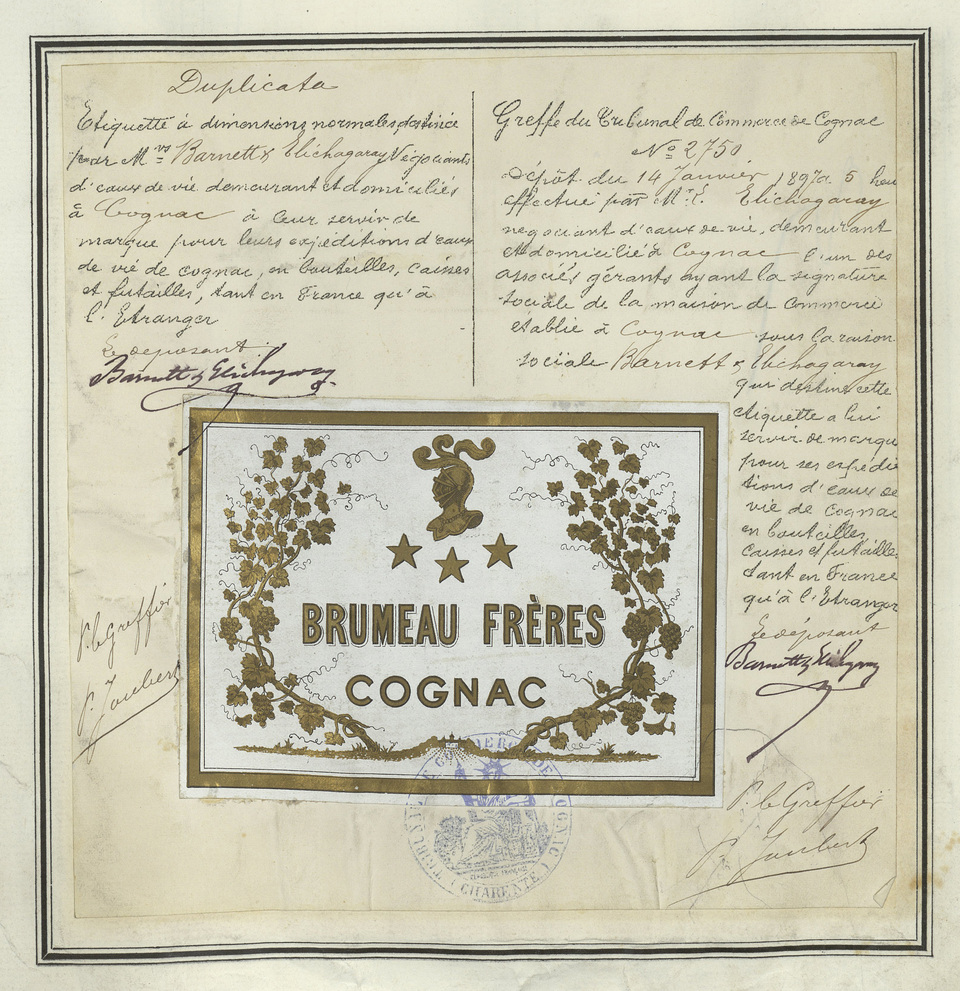 Duplicata
Etiquette à dimensions normales destinée
par M.rs Barnett & Elichagaray Négociants
d'eaux de vie demeurant et domiciliés
à Cognac à leur servir de
marque pour leurs expéditions d'eaux
de vie de cognac, en bouteilles, caisses
et futailles, tant en France qu'à
l'Etranger
Le déposant
Barnett & Elichagaray
P. le Greffier
P. Joubert
Greffe du Tribunal de Commerce de Cognac
No 2750
Dépôt du 14 Janvier 1897 à 5 heu
effectué par Mr. Elichagaray
negociant d'eaux de vie, demeurant
et domicilié à Cognac l'un des
associés gérants ayant la signature
sociale de la maison de commerce
établie à Cognac sous la raison
sociale Barnett & Elichagaray
qui destine cette
étiquette a lui
servir de marque
pour ses expédi
tions d'eaux de
vie de Cognac
en bouteilles,
caisses et futailles
tant en France
qu'à l'Etranger
Le déposant
Barnett & Elichagaray
P. le Greffier
P. Joubert
BRUMEAU FRÈRES
COGNAC
TRIBUNAL DE COMMERCE DE COGNAC
CHARENTE